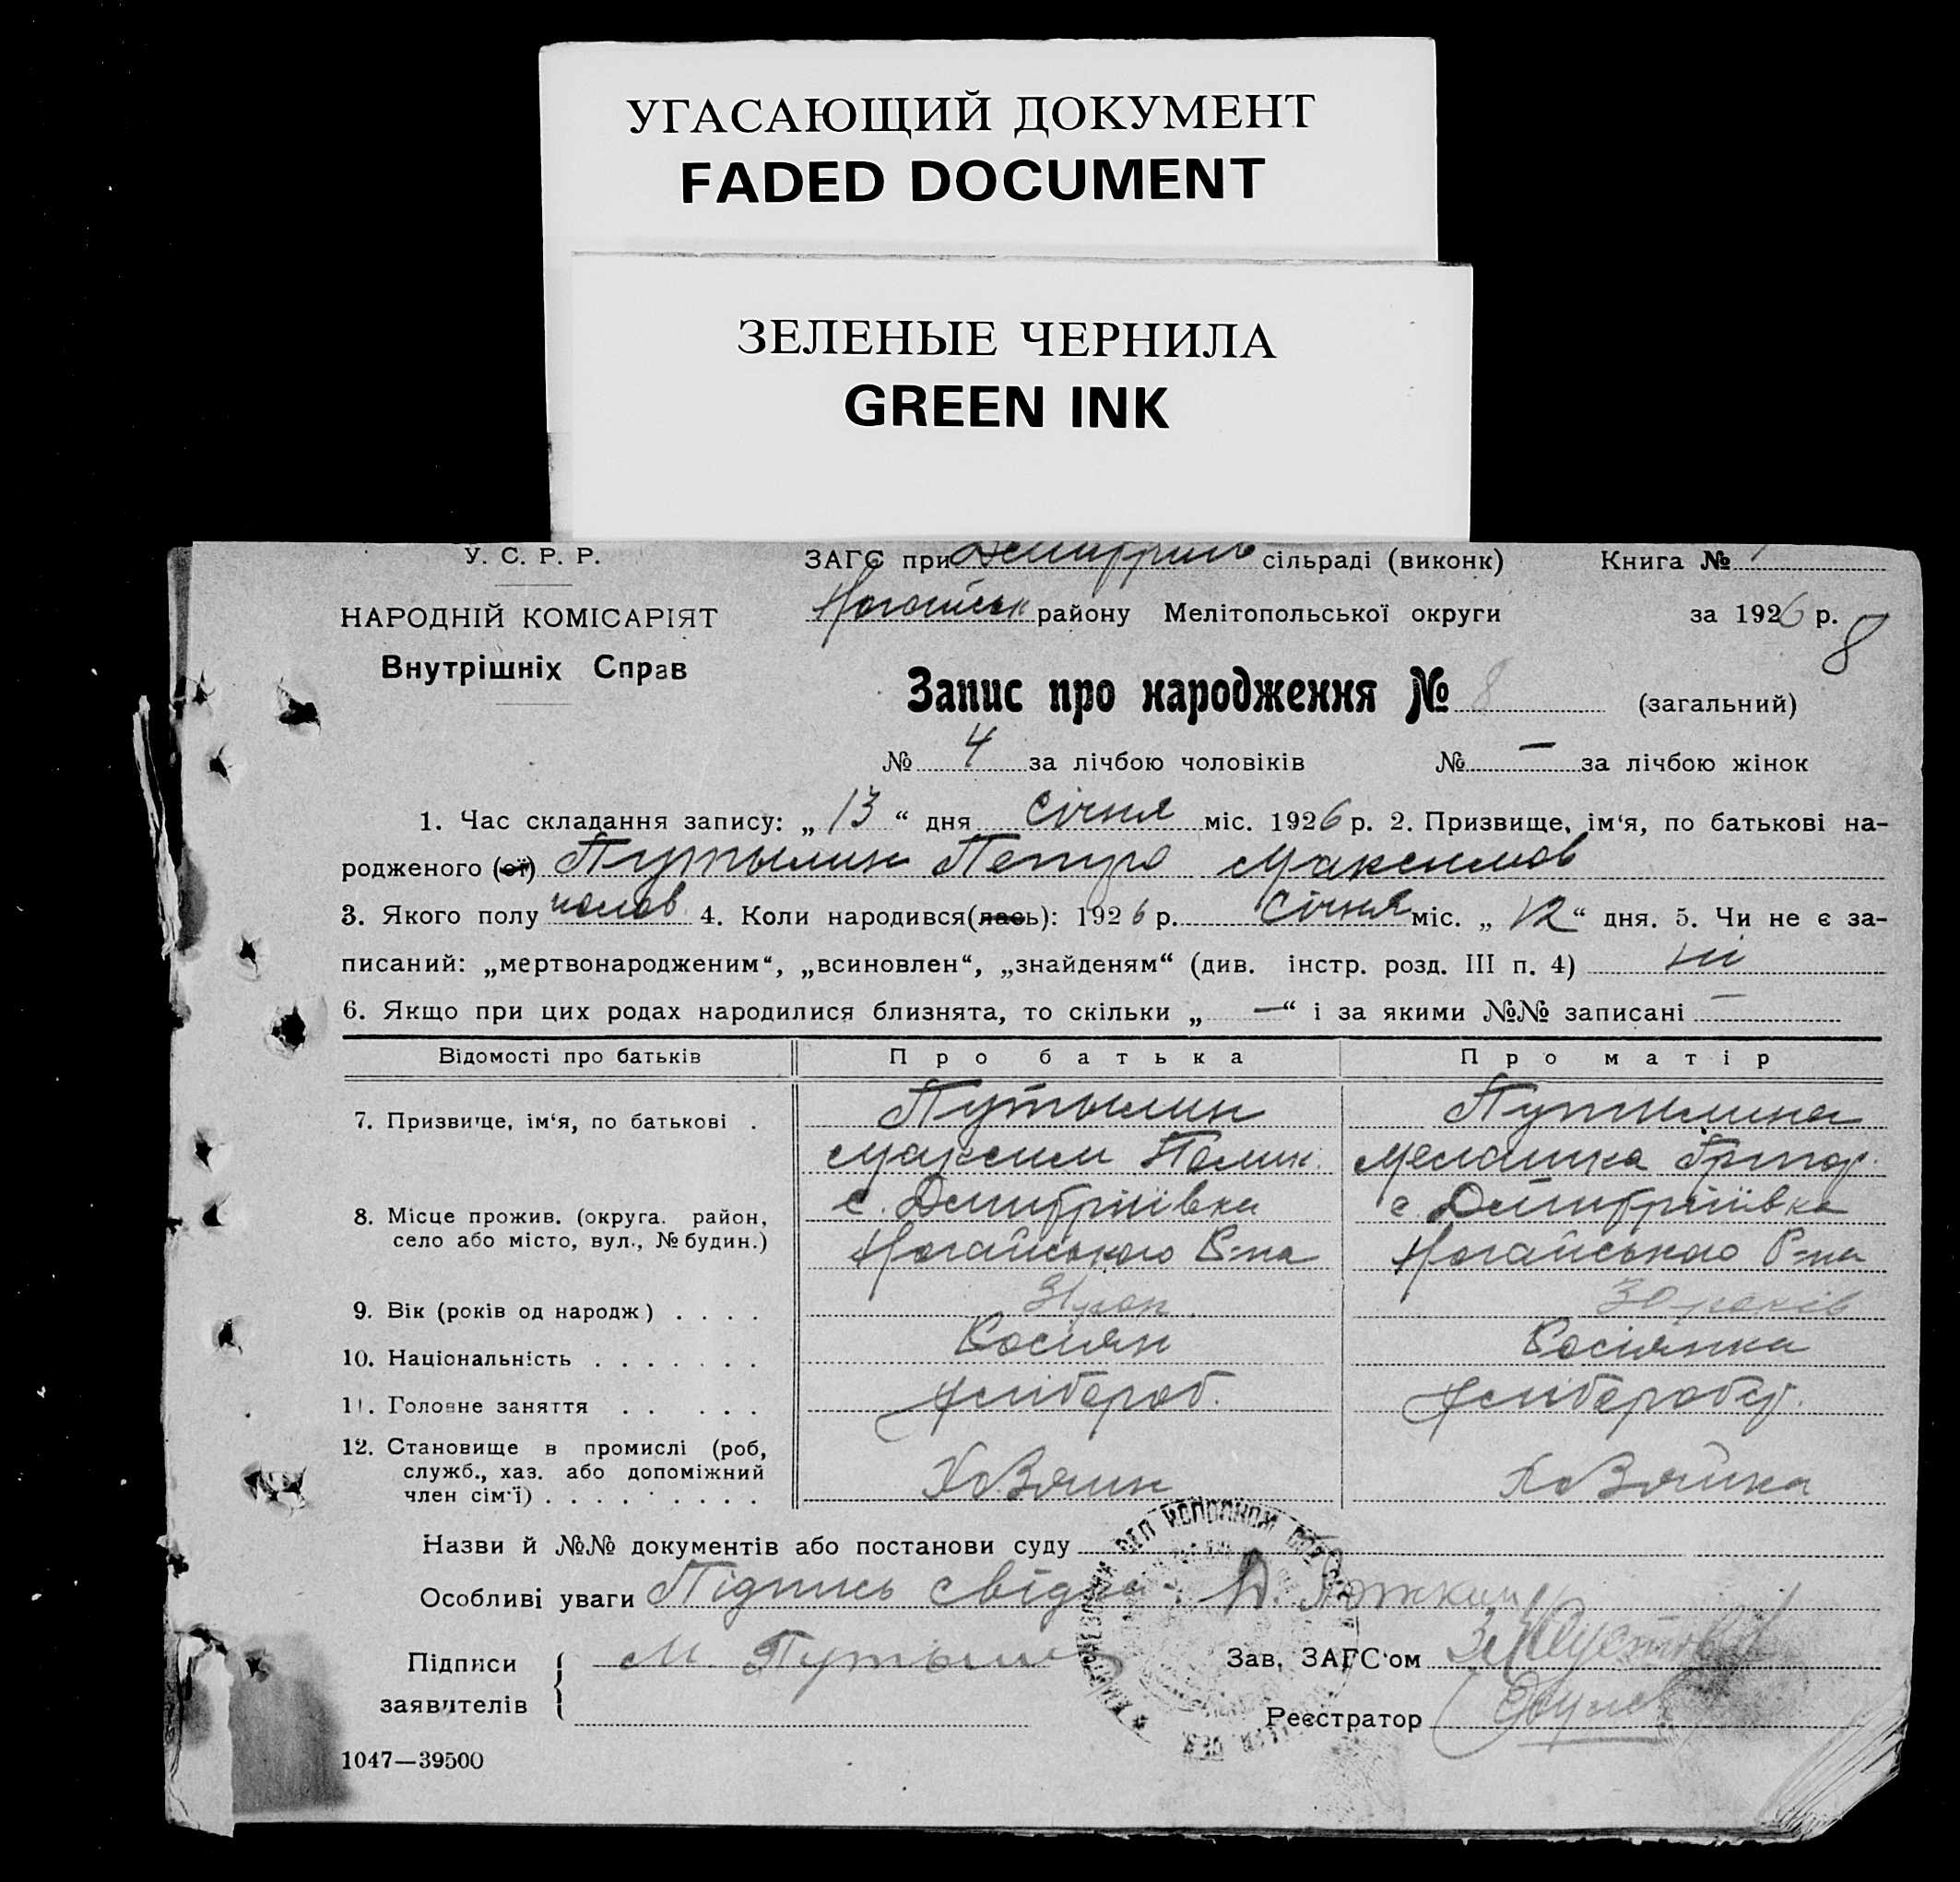 УГАСАЮЩИЙ ДОКУМЕНТ
FADED DOCUMENT
ЗЕЛЕНЫЕ ЧЕРНИЛА
GREEN INK
У. С. Р. Р.
ЗАГС при сільраді (виконк) Книга №
НАРОДНІЙ КОМІСАРІЯТ
Ногайськ району Мелітопольської округи за 1926 р.
8
Внутрішніх Справ
Запис про народження № 8 (загальний)
№ 4 за лічбою чоловіків № — за лічбою жінок
1. Час складання запису: „ 13 “ дня Січня міс. 1926 р. 2. Призвище, ім‘я, по батькові на-
родженого (ої) Путылин Петро Максимов
3. Якого полу чолов 4. Коли народився(лась): 1926 р. Січня міс. „ 12 “ дня. 5. Чи не є за-
писаний: „мертвонародженим“, „всиновлен“, „знайденям“ (див. інстр. розд. III п. 4) ні
6. Якщо при цих родах народилися близнята, то скільки „ — “ і за якими №№ записані —
Відомості про батьків Про батька Про матір
7. Призвище, ім‘я, по батькові . Путылин Путылина
Максим Меланка Григор.
8. Місце прожив. (округа. район, с. Дмитріївка с. Дмитріївка
село або місто, вул., № будин.) Ногайського Р-на Ногайського Р-на
9. Вік (років од народж) . . . . 31 рок. 30 років
10. Національність . . . . . . . Росіян Росіянка
11. Головне заняття . . . . . Хлібороб. Хлібороб
12. Становище в промислі (роб,
служб., хаз. або допоміжний
член сім‘ї) . . . . . . . . . ХоЗяин ХоЗяйка
Назви й №№ документів або постанови суду
Особливі уваги Підпись свідка
Підписи М. Путыли Зав. ЗАГС‘ом
заявителів Реєстратор
1047—39500